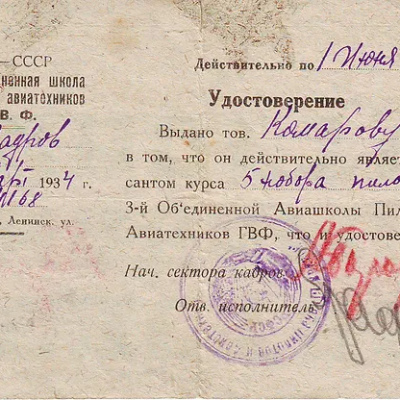 —СССР
ненная школа
авиатехников
В. Ф.
Кадров
1934 г.
№168
Ленинск. ул.
Действительно по 1 Июня
Удостоверение
Выдано тов. Комарову
в том, что он действительно являет
сантом курса 5 набора пило
3-й Об'единенной Авиашколы Пил
Авиатехников ГВФ, что и удостове
Нач. сектора кадров
Отв. исполнитель